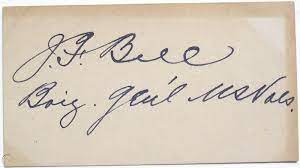 J. F. Bell
Brig. Gen'l U S Vols.